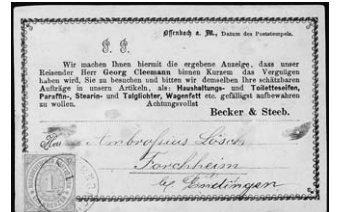 Offenbach a. M., Datum des Poststempels.
P. P.
Wir machen Ihnen hiermit die ergebene Anzeige, dass unser
Reisender Herr Georg Cleemann binnen Kurzem das Vergnügen
haben wird, Sie zu besuchen und bitten wir demselben Ihre schätzbaren
Aufträge in unsern Artikeln, als: Haushaltungs- und Toiletteseifen,
Paraffin-, Stearin- und Talglichter, Wagenfett etc. gefälligst aufbewahren
zu wollen. Achtungsvollst
Becker & Steeb.
Herrn Ambrosius Lösch
Forchheim
b/ Endingen
1